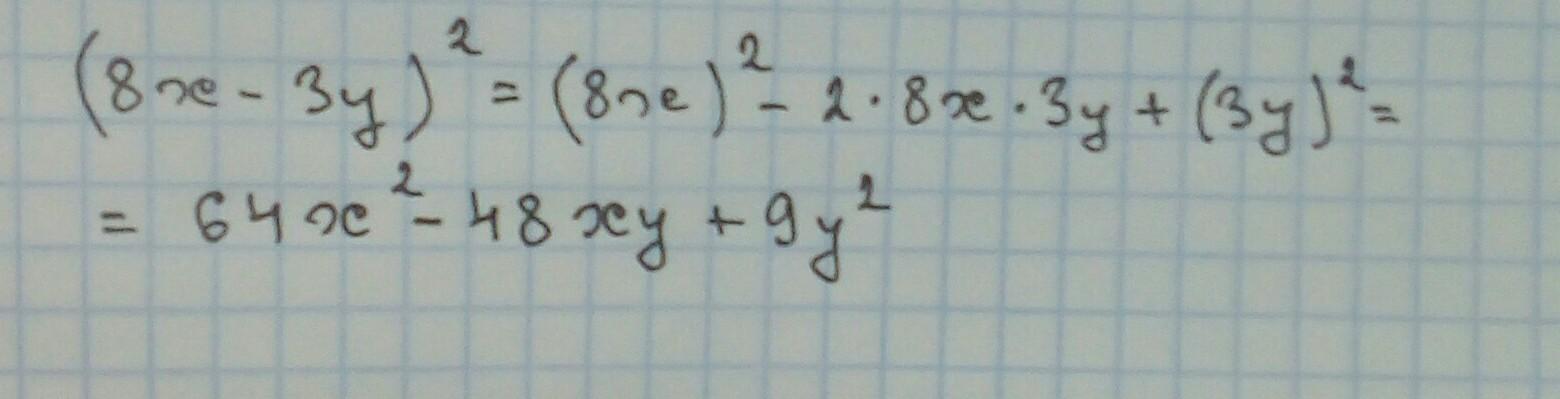 (8x - 3y)² = (8x)² - 2 · 8x · 3y + (3y)² =
= 64x² - 48xy + 9y²